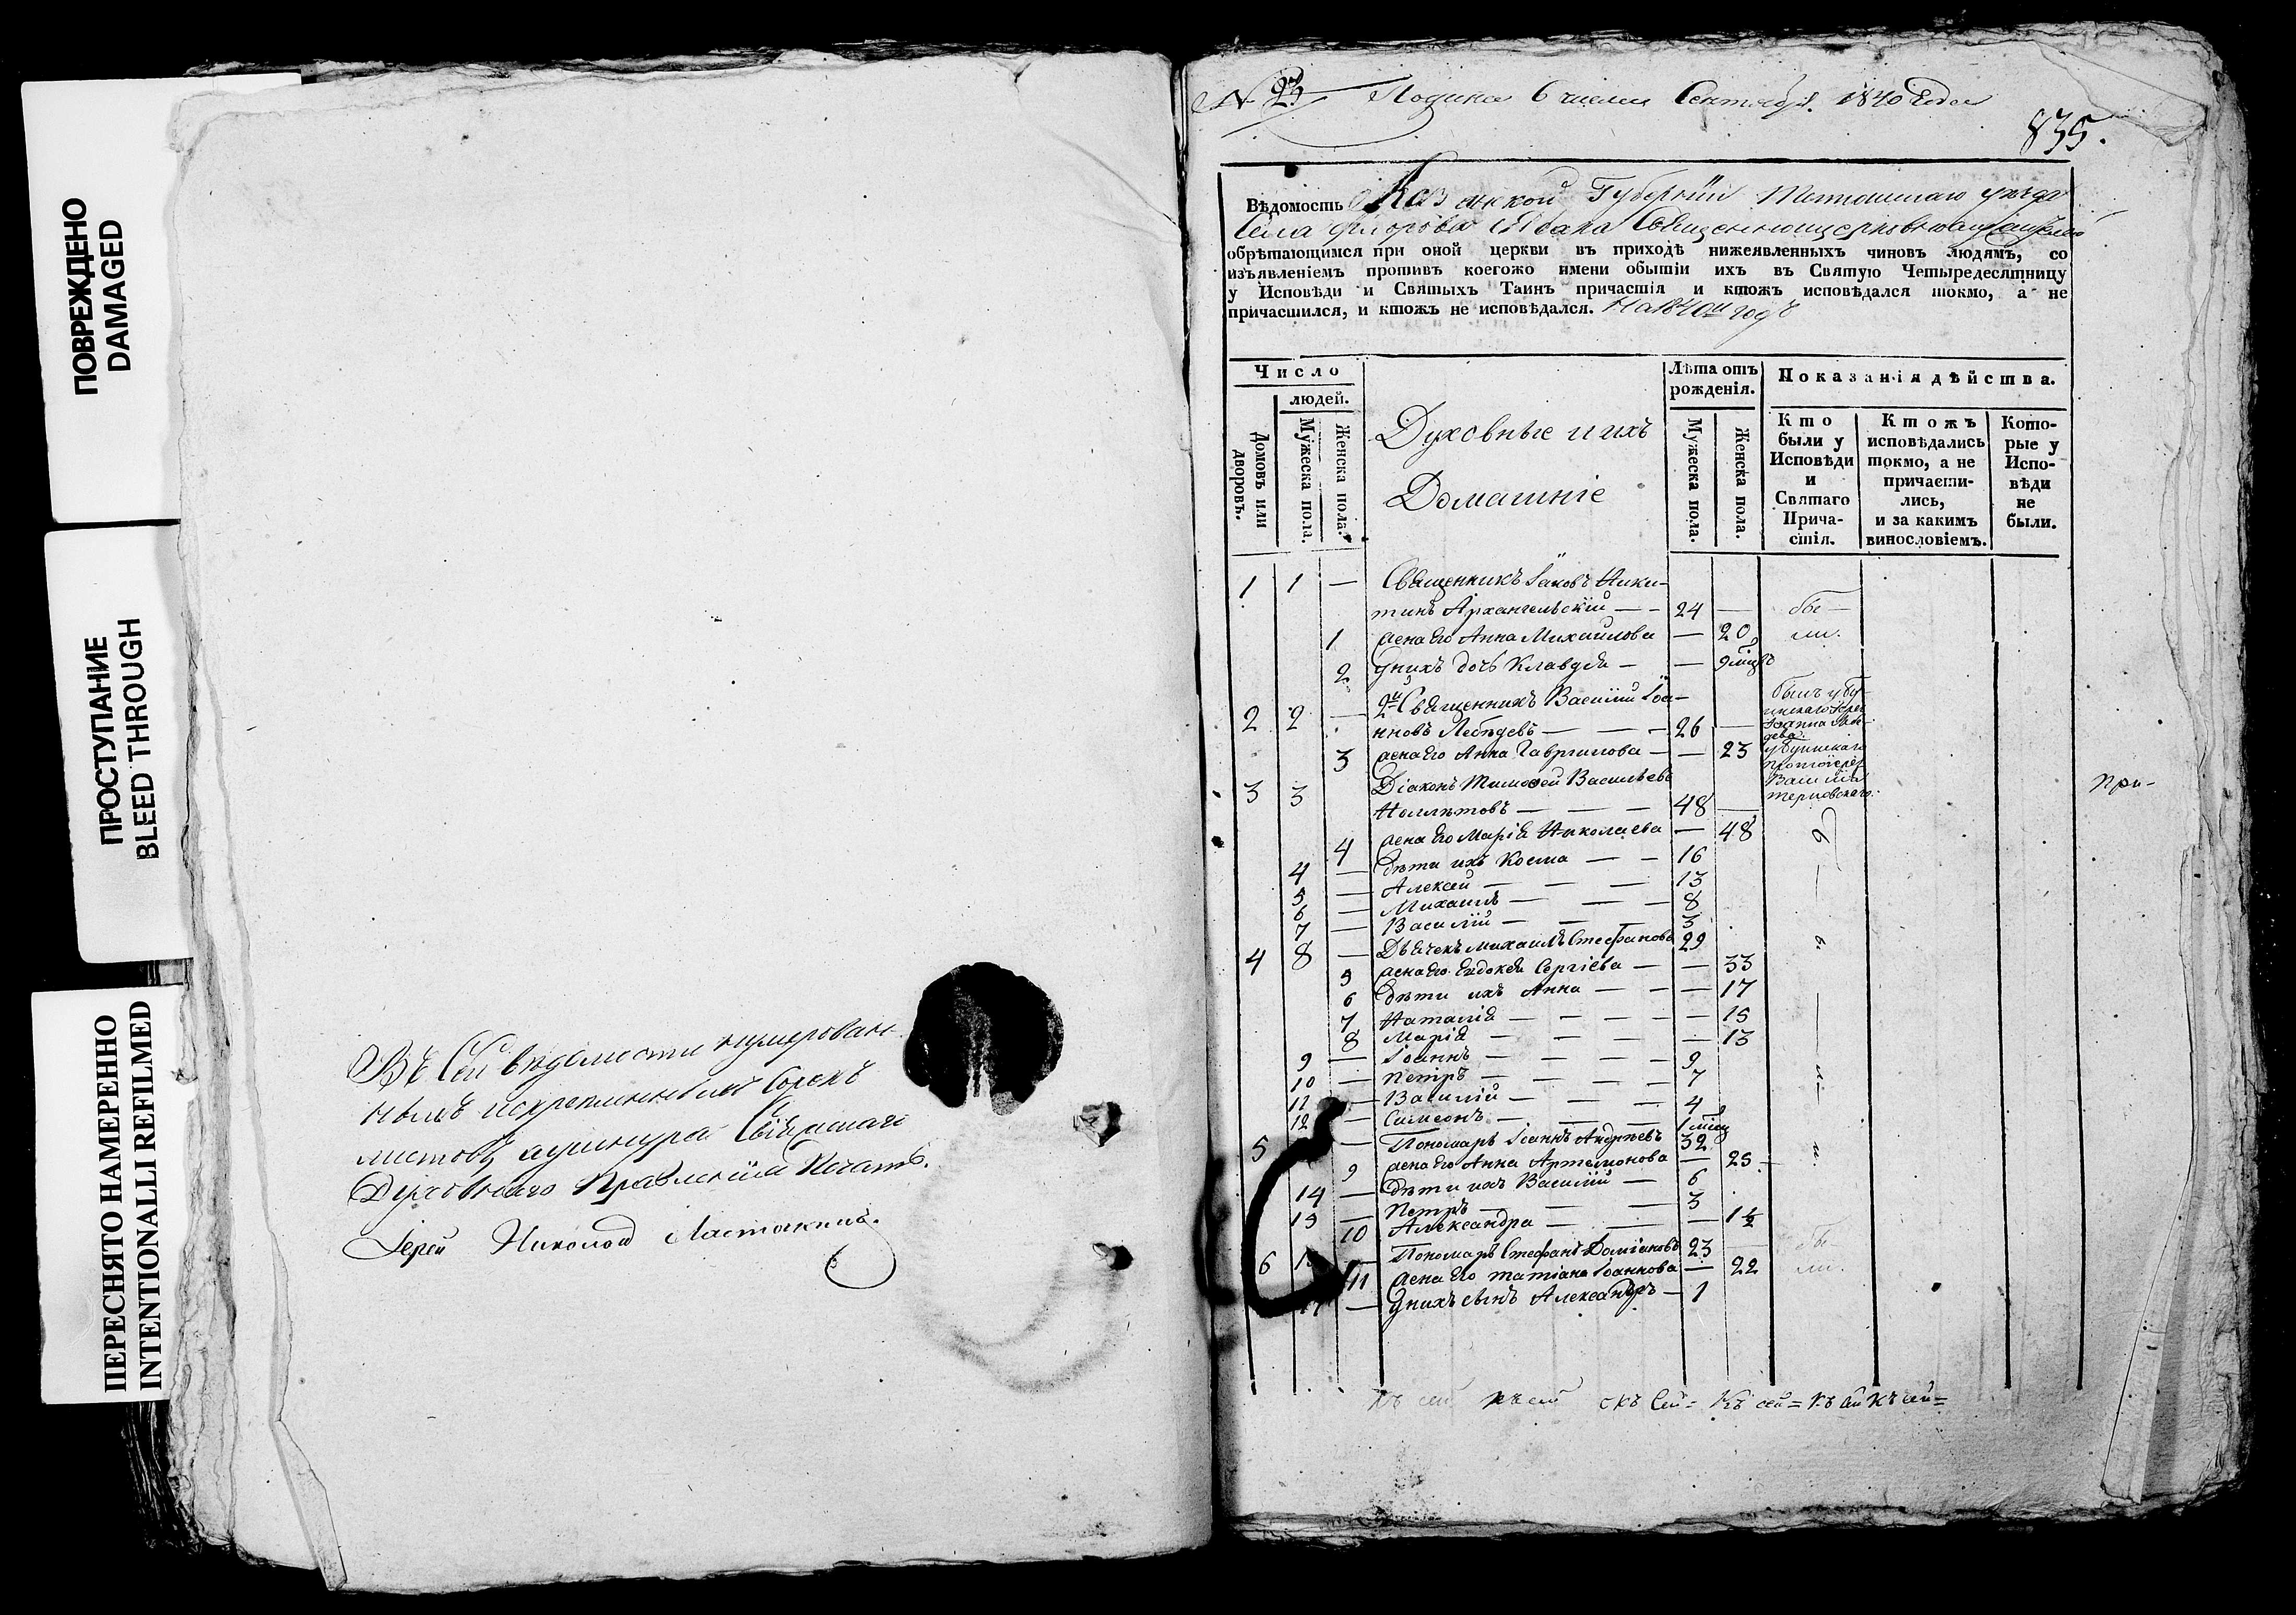 ПОВРЕЖДЕНО
DAMAGED
ПРОСТУПАНИЕ
BLEED THROUGH
ПЕРЕСНЯТО НАМЕРЕННО
INTENTIONALLI REFILMED
Въ Сей ведомости нумерован-
нымъ искрепленныхъ Сорокъ
листовъ ашнура
Духовнаго Правленія Печать.
Іерей Николай Ласточкинъ.
N 23 Подана 6 числа Сентября. 1840 Года
835.
Вѣдомость Казанской Губерніи Тетюшскаго уѣзда
Села
обрѣтающимся при оной церкви въ приходѣ нижеявленныхъ чиновъ людямъ, со
изъявленіемъ противъ коегожо имени обытіи ихъ въ Святую Четыредесятницу
у Исповѣди и Святыхъ Таинъ причастія и ктожъ исповѣдался токмо, а не
причастился, и ктожъ не исповѣдался. На 1840й годъ
Число
людей.
Домовъ или дворовъ.
Мужеска пола.
Женска пола.
Духовные и ихъ
Домашніе
Лѣта отъ
рожденія.
Мужеска пола.
Женска пола.
Показанія дѣйства.
Кто
были у
Исповѣди
и
Святаго
Прича-
стія.
Ктожъ
исповѣдались
токмо, а не
причасти-
лись,
и за какимъ
винословіемъ.
Кото-
рые у
Испо-
вѣди
не
были.
1 1 — Священникъ Іаковъ Ники-
тинъ Архангельскій — — 24 — бы-
1 жена Его Анна Михайлова — 20 ли.
2 у нихъ дочь Клавдія — — 9 мцъ
2 2 — 2й Священникъ Василій Іоа-
нновъ Лебедевъ — — — 26 —
3 жена Его Анна Гаврилова — — 23
3 3 Діаконъ Тимофей Васильевъ
— — — 48 —
4 жена Его Марія Николаева — 48
4 — дѣти ихъ Косма — — 16
5 — Алексей — — — 13
6 — Михаилъ — — — 8
7 — Василій — — — 3
4 8 — Дьячекъ Михаилъ Стефановъ 29
5 жена Его Евдокея Сергіева — — 33
6 дѣти ихъ Анна — — — 17
7 Наталія — — — — 15
8 Марія — — — — 13
9 — Іоаннъ — — — 9
10 — Петръ — — — 7
11 — Василій — — — 4
12 — Симеонъ — — — 1 мцъ
5 — Пономарь Іоаннъ Андреевъ 32
9 жена Его Анна Артемонова — 25
14 — дѣти ихъ Василій — 6
15 — Петръ — — 3
10 Александра — — — 1½
6 — Пономарь Стефанъ Даміановъ 23 — бы-
11 жена Его татіана Іоаннова — 22 ли.
17 — у нихъ сынъ Александръ — 1
При-
къ сей къ сей къ Сей = Къ сей = къ сей къ сей =